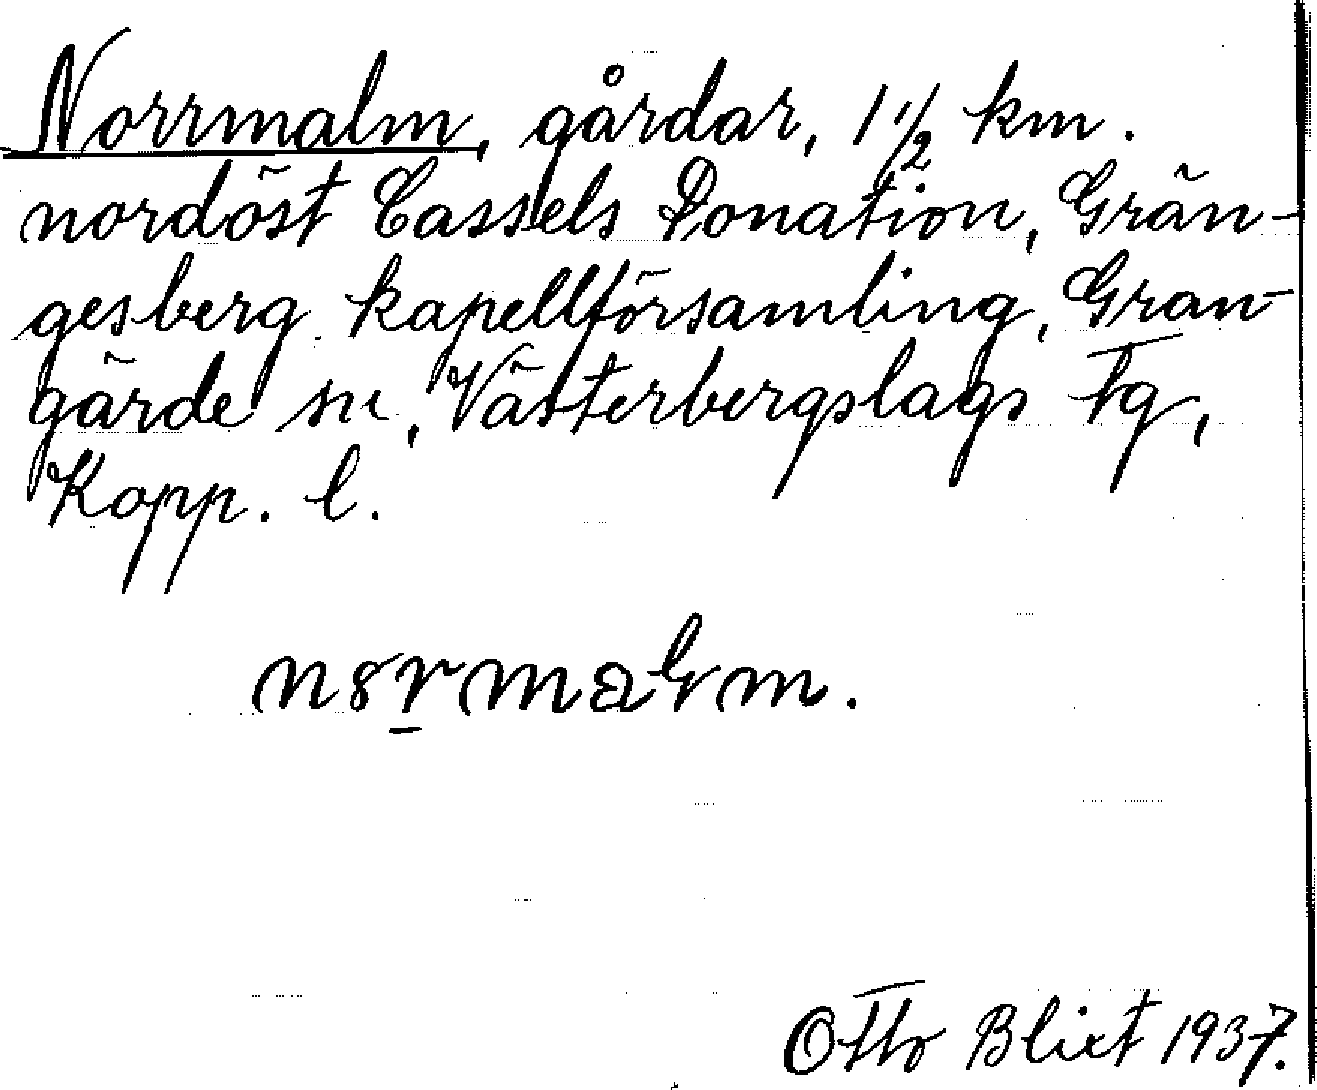 Norrmalm, gårdar, 1 1/2 km.
nordöst Cassels Donation, Grän-
gesberg kapellförsamling, Gran-
gärde sn, Västerbergslags Fg,
Kopp. l.
Otto Blixt 1937.